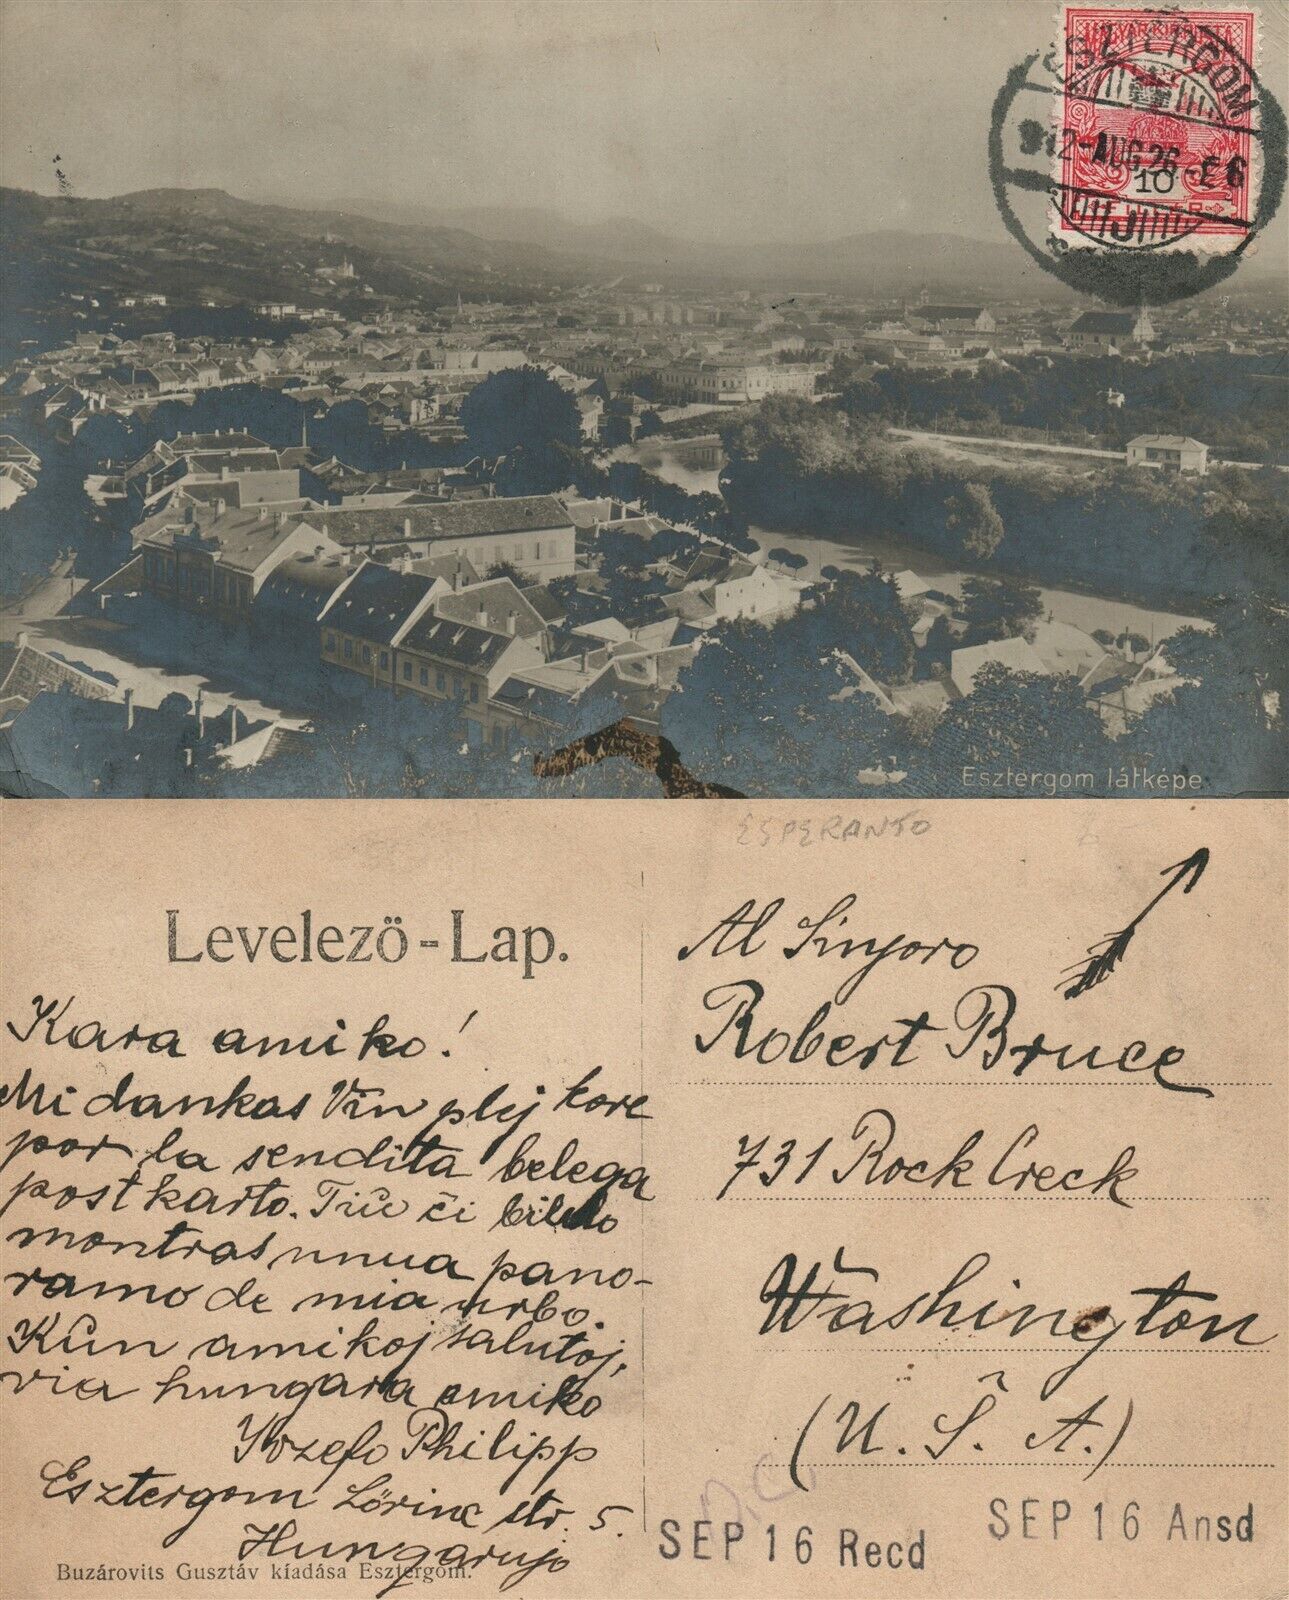 MAGYAR KIR. POSTA
ESZTERGOM
912-AUG.26.-E6
10
FILLÉR
J
Esztergom látképe.
ESPERANTO
Levelező-Lap.
Kara amiko!
Mi dankas Vin plej kore
por la sendita belega
postkarto. Tiu ĉi bildo
montras unua pano-
ramo de mia urbo.
Kun amikoj salutoj,
via hungara amiko
Jozefo Philipp
Esztergom Lőrinc str. 5.
Hungarujo
Buzárovits Gusztáv kiadása Esztergom.
Al Sinjoro
Robert Bruce
731 Rock Creek
Washington
(U. S. A.)
D.C.
SEP 16 Recd
SEP 16 Ansd